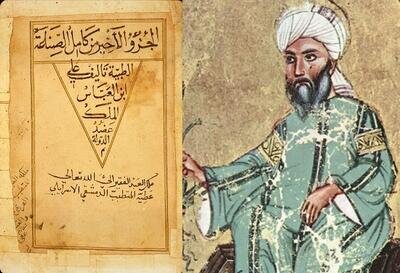 الجزؤ الاخير من كامل الصناعة
الطبية تاليف علي
ابن العباس
الملك
عضد
الدولة
العبد الفقير الى الله تعالى
عطية المتطبب الدمشقي الاسرايلي